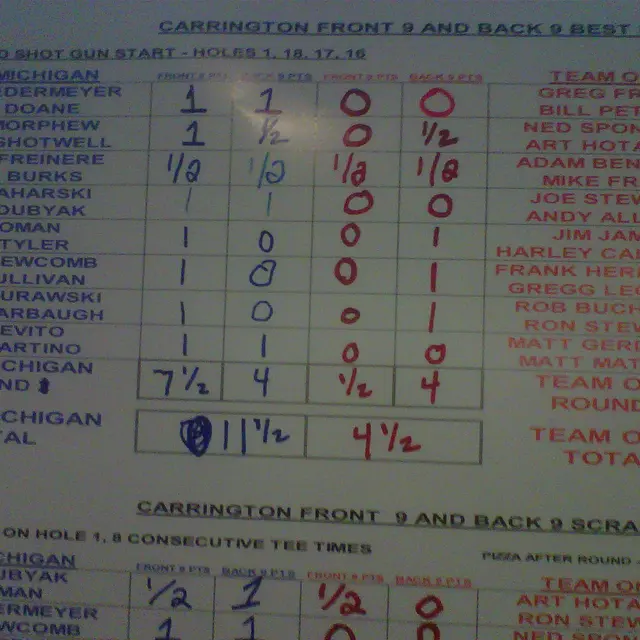 CARRINGTON FRONT 9 AND BACK 9 BEST
SHOT GUN START - HOLES 1, 18, 17, 16
MICHIGAN FRONT 9 PTS BACK 9 PTS FRONT 9 PTS BACK 9 PTS TEAM O
DERMEYER DOANE 1 1 0 0 GREG FR BILL PET
MORPHEW SHOTWELL 1 1/2 0 1/2 NED SPON ART HOTA
FREINERE BURKS 1/2 1/2 1/2 1/2 ADAM BEN MIKE FR
AHARSKI DUBYAK 1 1 0 0 JOE STEW ANDY ALLI
OMAN TYLER 1 0 0 1 JIM JAM HARLEY CAR
EWCOMB ULLIVAN 1 0 0 1 FRANK HERI GREGG LEO
URAWSKI ARBAUGH 1 0 0 1 ROB BUCH RON STEV
EVITO ARTINO 1 1 0 0 MATT GERD MATT MAT
CHIGAN ND 7 1/2 4 1/2 4 TEAM O ROUND
CHIGAN AL 11 1/2 4 1/2 TEAM O TOTA
CARRINGTON FRONT 9 AND BACK 9 SCRA
ON HOLE 1, 8 CONSECUTIVE TEE TIMES PIZZA AFTER ROUND
CHIGAN FRONT 9 PTS BACK 9 PTS FRONT 9 PTS BACK 9 PTS TEAM O
UBYAK MAN 1/2 1 1/2 0 ART HOTA RON STEW
ERMEYER WCOMB 1 1 0 0 NED SPO